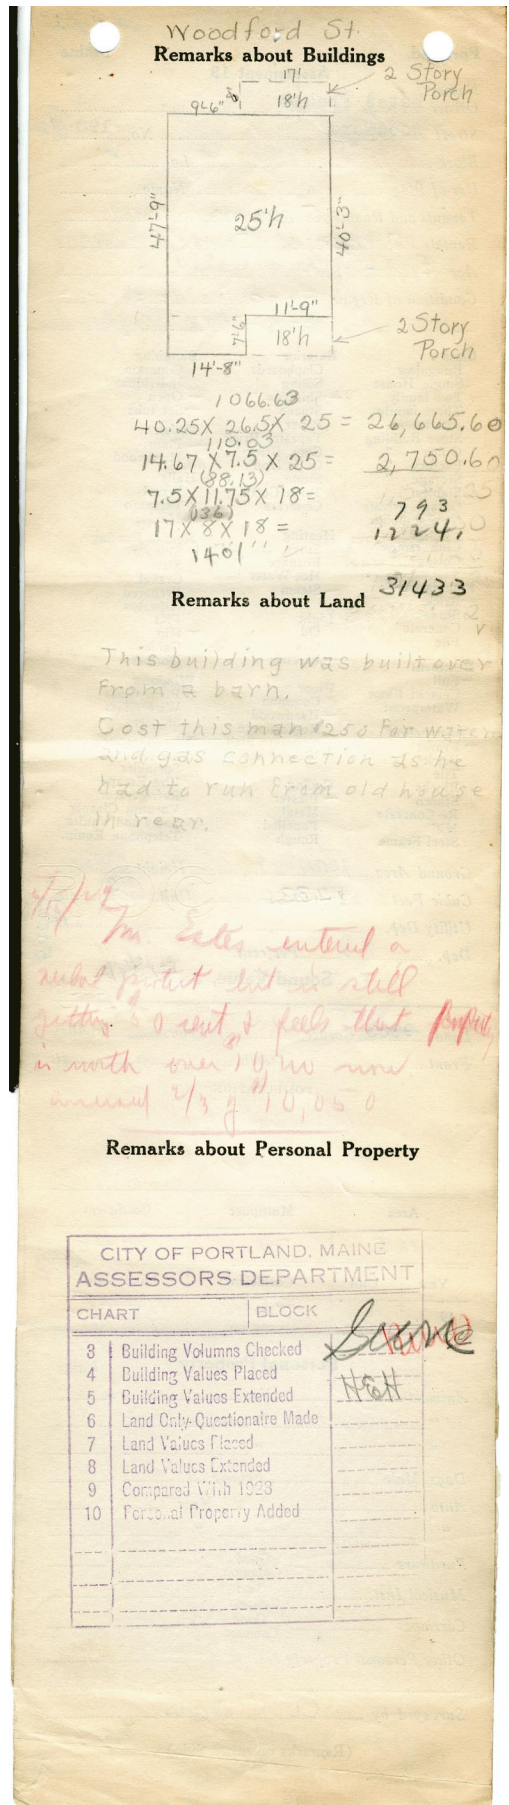 Woodford St.
Remarks about Buildings
17'
2 Story
Porch
9'-6" 8' 18'h
47'-9"
25'h
40'-3"
11'-9"
7'-6"
18'h
2 Story
Porch
14'-8"
1066.63
40.25 X 26.5 X 25 = 26,665.60
110.03
14.67 X 7.5 X 25 = 2,750.60
(88.13)
7.5 X 11.75 X 18 = 793
(136)
17 X 8 X 18 = 1224.
1401
31433
Remarks about Land
This building was built over
from a barn.
Cost this man $250 for water
and gas connection as he
had to run from old house
in rear.
Mr. Estes entered a
verbal protest but is still
getting 80 rent & feels that property
is worth over
2/3 of $10,050
Remarks about Personal Property
CITY OF PORTLAND, MAINE
ASSESSORS DEPARTMENT
CHART BLOCK
3 Building Volumns Checked
4 Building Values Placed
5 Building Values Extended H&H
6 Land Only-Questionaire Made
7 Land Values Placed
8 Land Values Extended
9 Compared With 1923
10 Personal Property Added